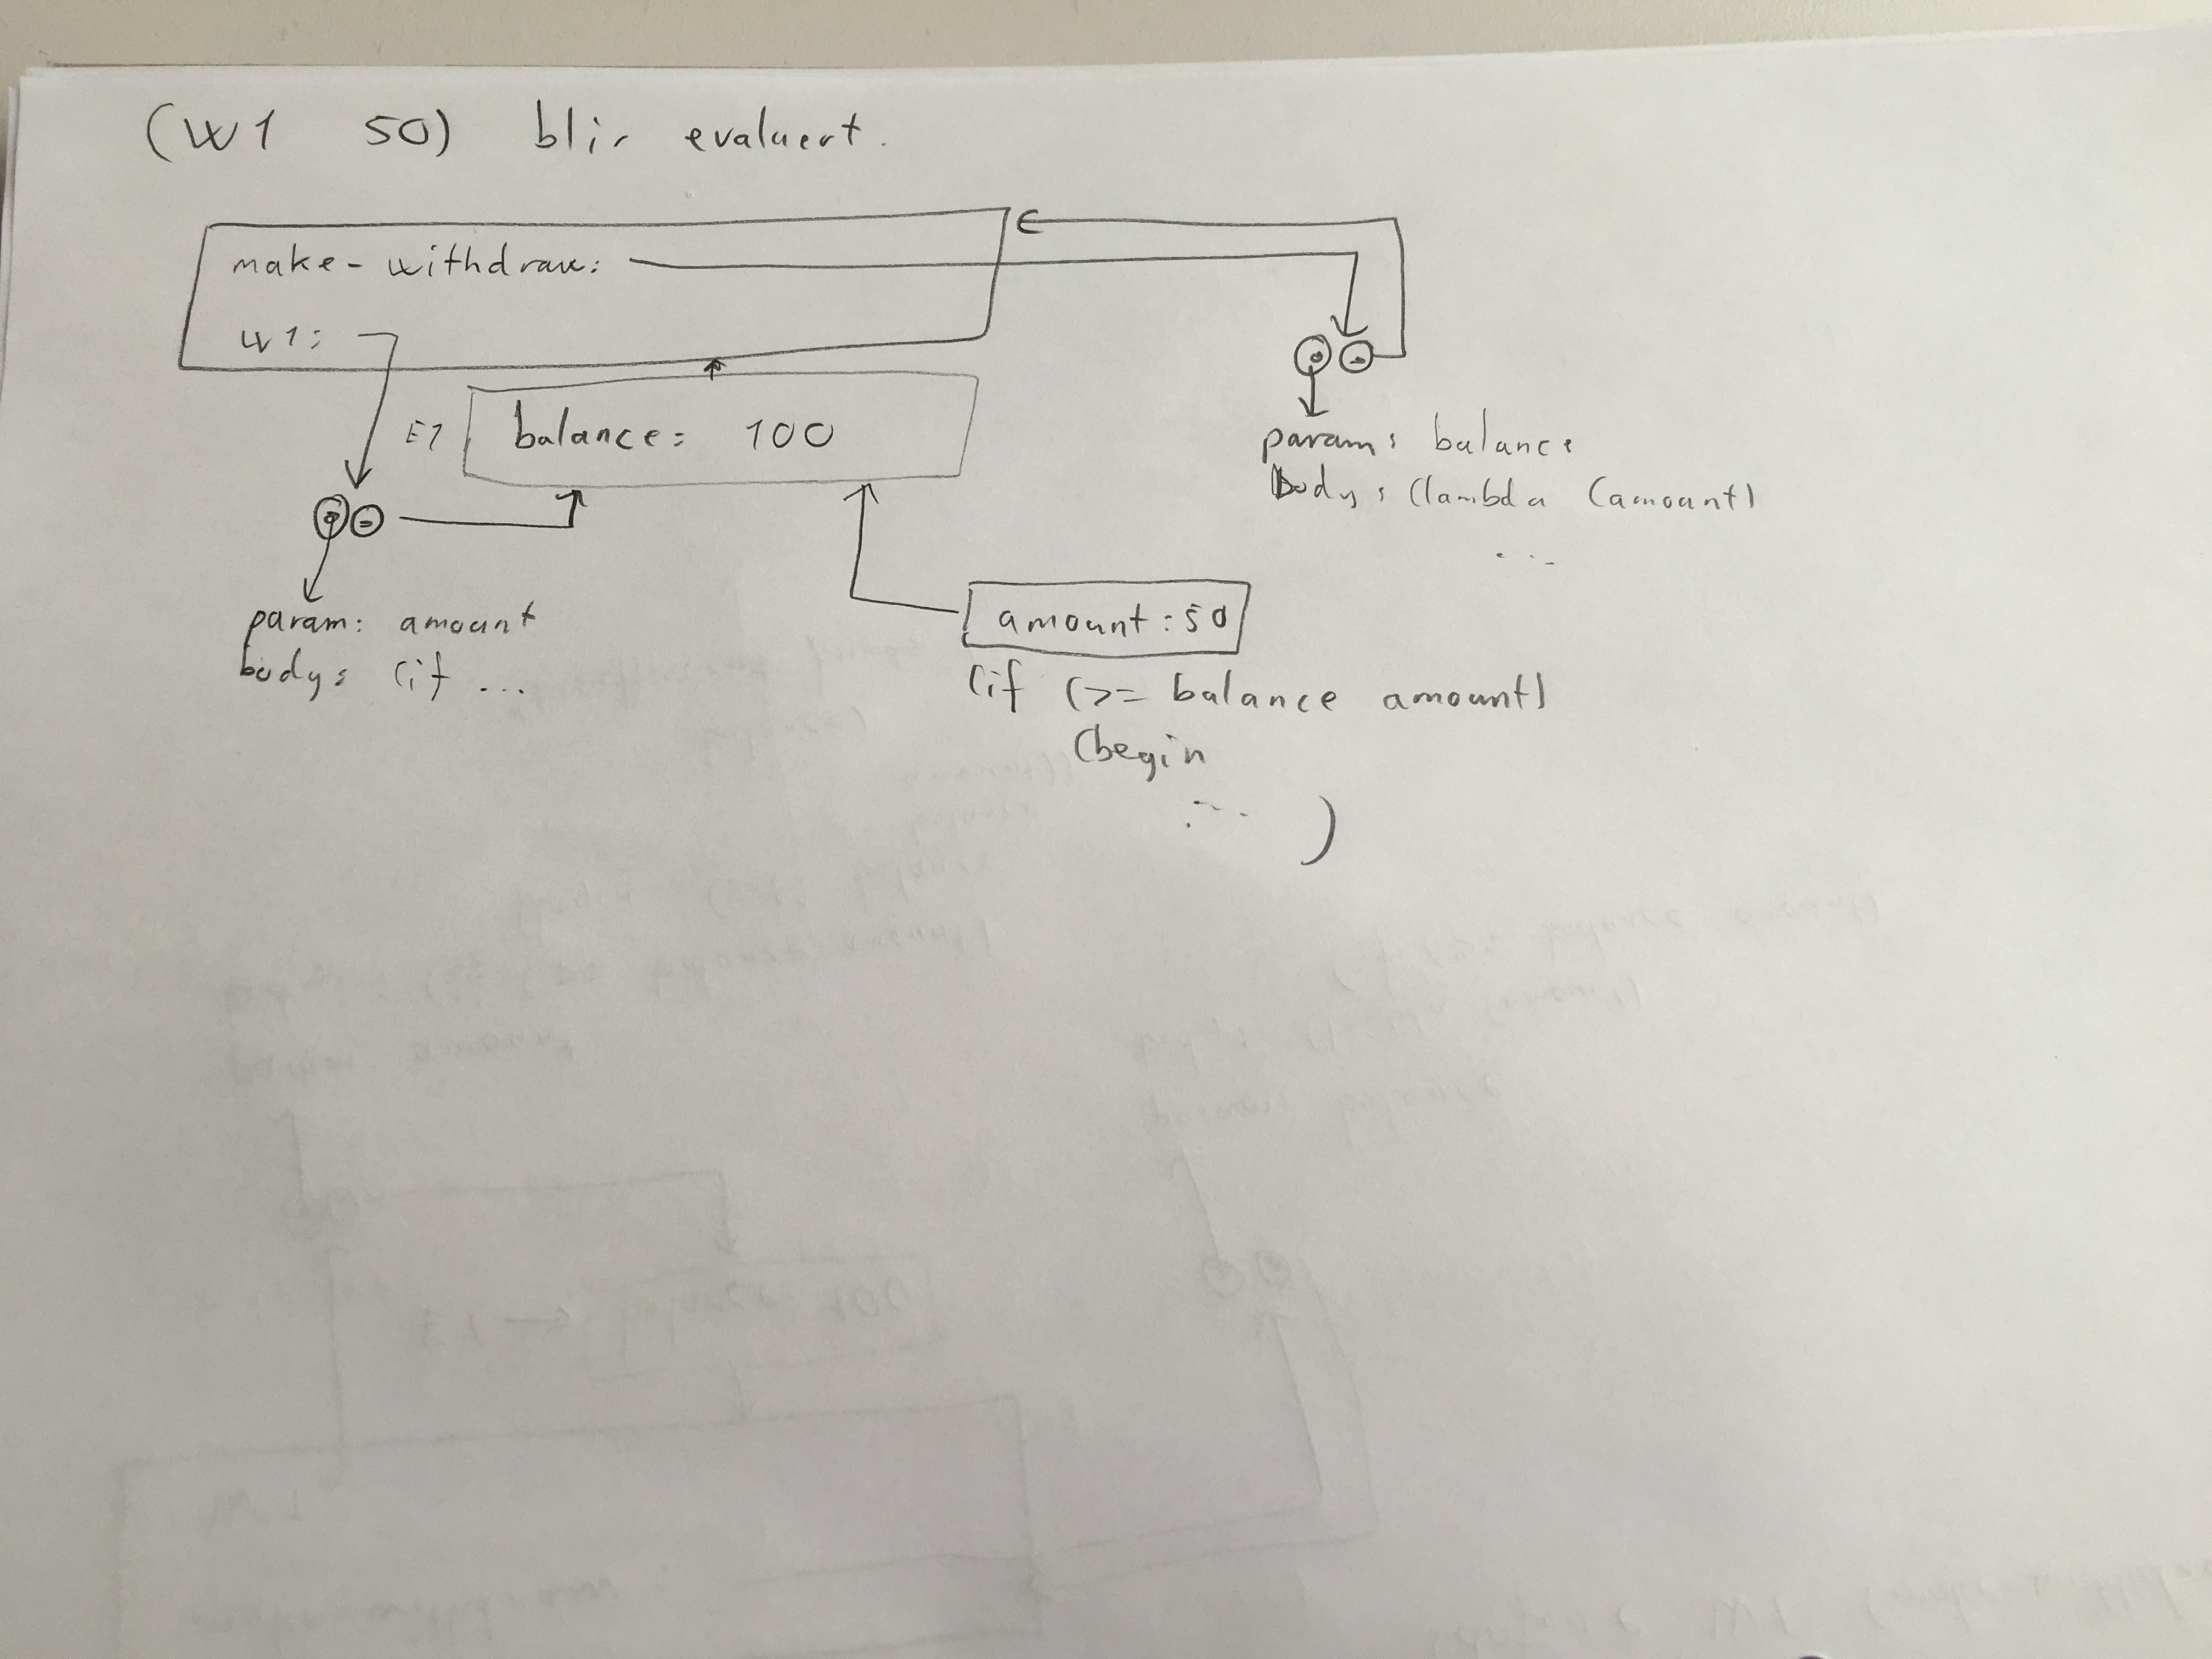 (W1 50) blir evaluert.
make-withdraw:
W1:
E1
balance: 100
param: balance
Body: (lambda (amount)
...
param: amount
body: (if ...
amount: 50
(if (>= balance amount)
(begin
... )